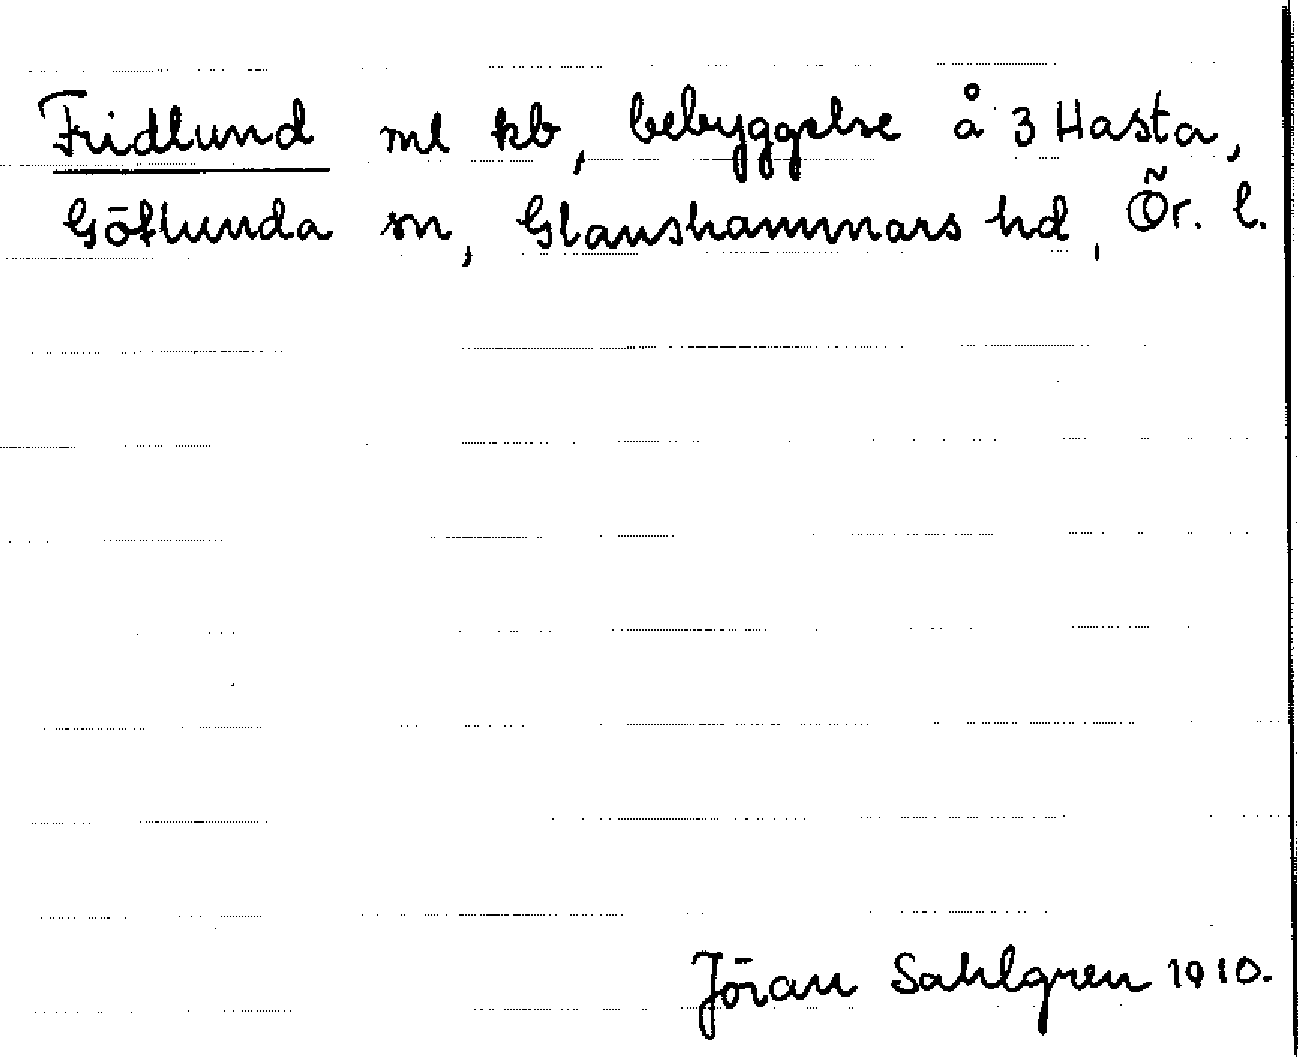 Fridlund ml kb, bebyggelse å 3 Hasta,
Götlunda sn, Glanshammars hd, Ör. l.
Jöran Sahlgren 1910.